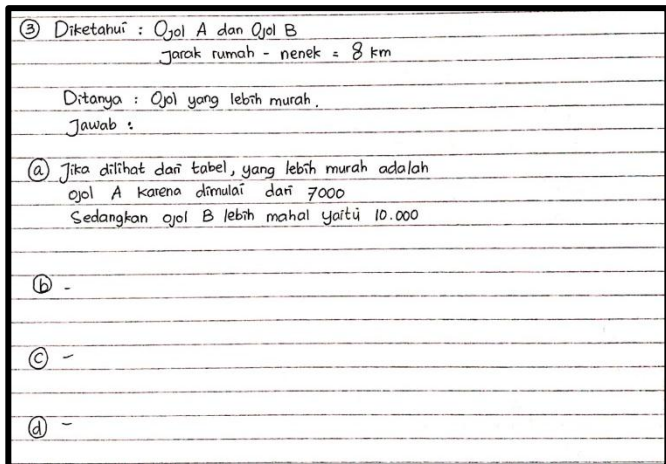 ③ Diketahui : Ojol A dan Ojol B
Jarak rumah - nenek = 8 km
Ditanya : Ojol yang lebih murah.
Jawab :
ⓐ Jika dilihat dari tabel, yang lebih murah adalah
ojol A karena dimulai dari 7000
Sedangkan ojol B lebih mahal yaitu 10.000
ⓑ -
ⓒ -
ⓓ -